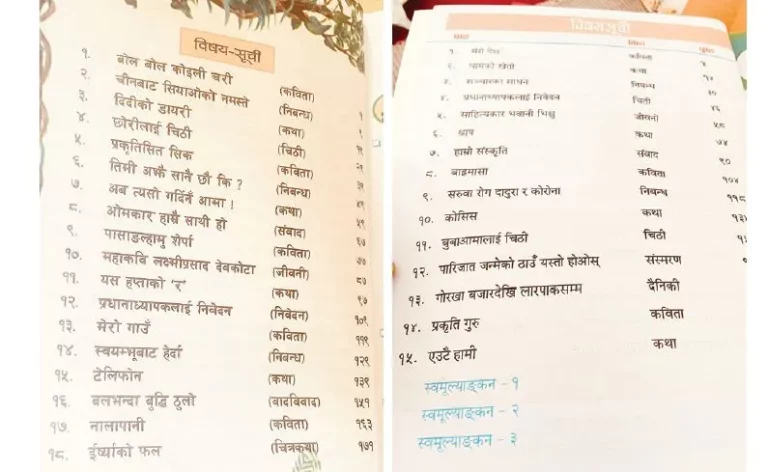 विषय-सूची
१. बोल बोल कोइली चरी (कविता) १
२. चीनबाट सियाओको नमस्ते (निबन्ध) ९
३. दिदीको डायरी (कथा)
४. छोरीलाई चिठी (चिठी)
५. प्रकृतिसित सिक (कविता)
६. तिमी अझै सानै छौ कि ? (निबन्ध)
७. अब त्यसो गर्दिनँ आमा ! (कथा)
८. ओमकार हाम्रै साथी हो (संवाद)
९. पासाङल्हामु शेर्पा (कविता)
१०. महाकवि लक्ष्मीप्रसाद देवकोटा (जीवनी) ८७
११. यस हप्ताको 'र' (कथा) ९७
१२. प्रधानाध्यापकलाई निवेदन (निवेदन) १०९
१३. मेरो गाउँ (कविता) ११९
१४. स्वयम्भूबाट हेर्दा (निबन्ध) १२९
१५. टेलिफोन (कथा) १३९
१६. बलभन्दा बुद्धि ठुलो (वादविवाद) १५१
१७. नालापानी (कविता) १६३
१८. ईर्ष्याको फल (चित्रकथा) १७१
विषयसूची
पाठ विधा पृष्ठ
१. कविता
२. घामको खेती कथा
३. सञ्चारका साधन निबन्ध ३०
४. प्रधानाध्यापकलाई निवेदन चिठी ४६
५. साहित्यकार भवानी भिक्षु जीवनी ५८
६. कथा ७४
७. हाम्रो संस्कृति संवाद ९०
८. बाह्रमासा कविता १०४
९. सरुवा रोग दादुरा र कोरोना निबन्ध ११८
१०. कोसिस कथा
११. बुबाआमालाई चिठी चिठी
१२. पारिजात जन्मेको ठाउँ यस्तो होओस् संस्मरण
१३. गोरखा बजारदेखि लारपाकसम्म दैनिकी
१४. प्रकृति गुरु कविता
१५. एउटै हामी कथा
स्वमूल्याङ्कन - १
स्वमूल्याङ्कन - २
स्वमूल्याङ्कन - ३